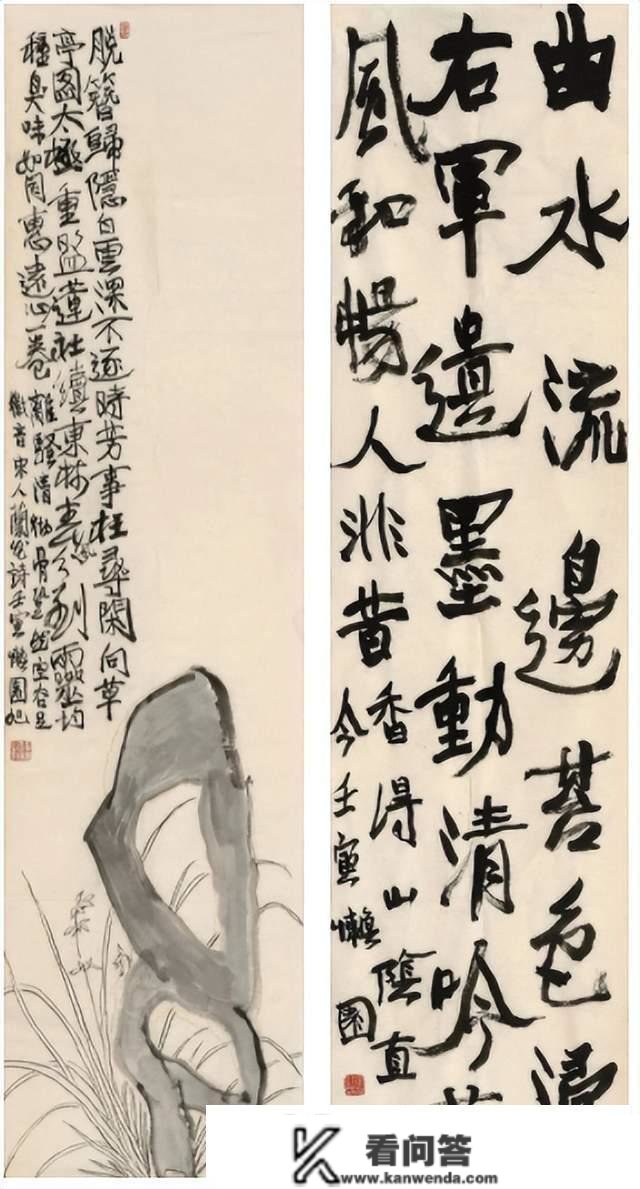 脱簪歸隱白雲深不逐時芳事枉尋閑向草
亭圖太極重盟蓮社續東林春到雨均
種臭味如同惠遠心一卷離騷清骨跫然空谷足
徽音宋人蘭花詩壬寅懶園旭
曲水流邊色
右軍遺墨動清吟
風和暢人非昔香得山陰直
今壬寅懶園
看问答
www.kanwenda.com